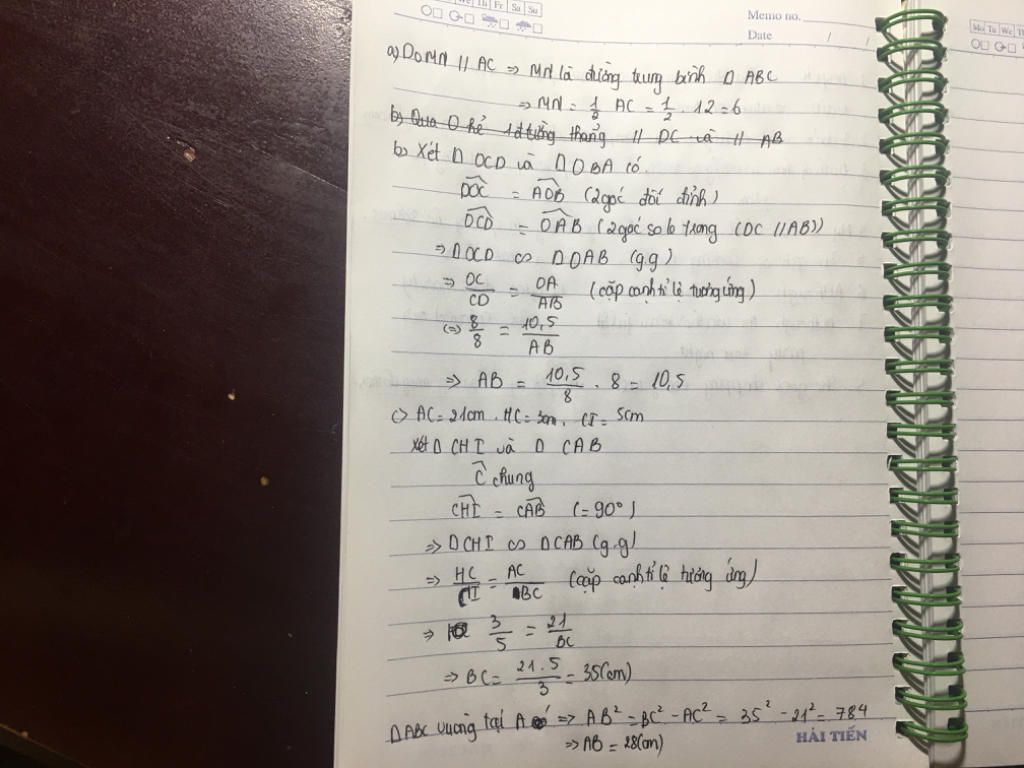 We Th Fr Sa Su
Memo no.
Date / /
Mo Tu We Th
a) Do MN // AC ⇒ MN là đường trung bình Δ ABC
⇒ MN = 1/2 AC = 1/2 . 12 = 6
b) Qua O kẻ 1 đường thẳng // DC và // AB
b) Xét Δ OCD và Δ OBA có.
DOC = AOB (2 góc đối đỉnh)
OCD = OAB (2 góc so le trong (DC // AB))
⇒ Δ OCD ∽ Δ OAB (g.g)
⇒ OC/CD = OA/AB (cặp cạnh tỉ lệ tương ứng)
(=) 8/8 = 10,5/AB
⇒ AB = 10,5/8 . 8 = 10,5
c) AC = 21cm . HC = 3cm . CI = 5cm
Xét Δ CHI và Δ CAB
C chung
CHI = CAB (= 90°)
⇒ Δ CHI ∽ Δ CAB (g.g)
⇒ HC/CI = AC/BC (cặp cạnh tỉ lệ tương ứng)
⇒ 3/5 = 21/BC
⇒ BC = 21.5/3 = 35(cm)
Δ ABC vuông tại A ⇒ AB² = BC² - AC² = 35² - 21² = 784
HẢI TIẾN
⇒ AB = 28(cm)